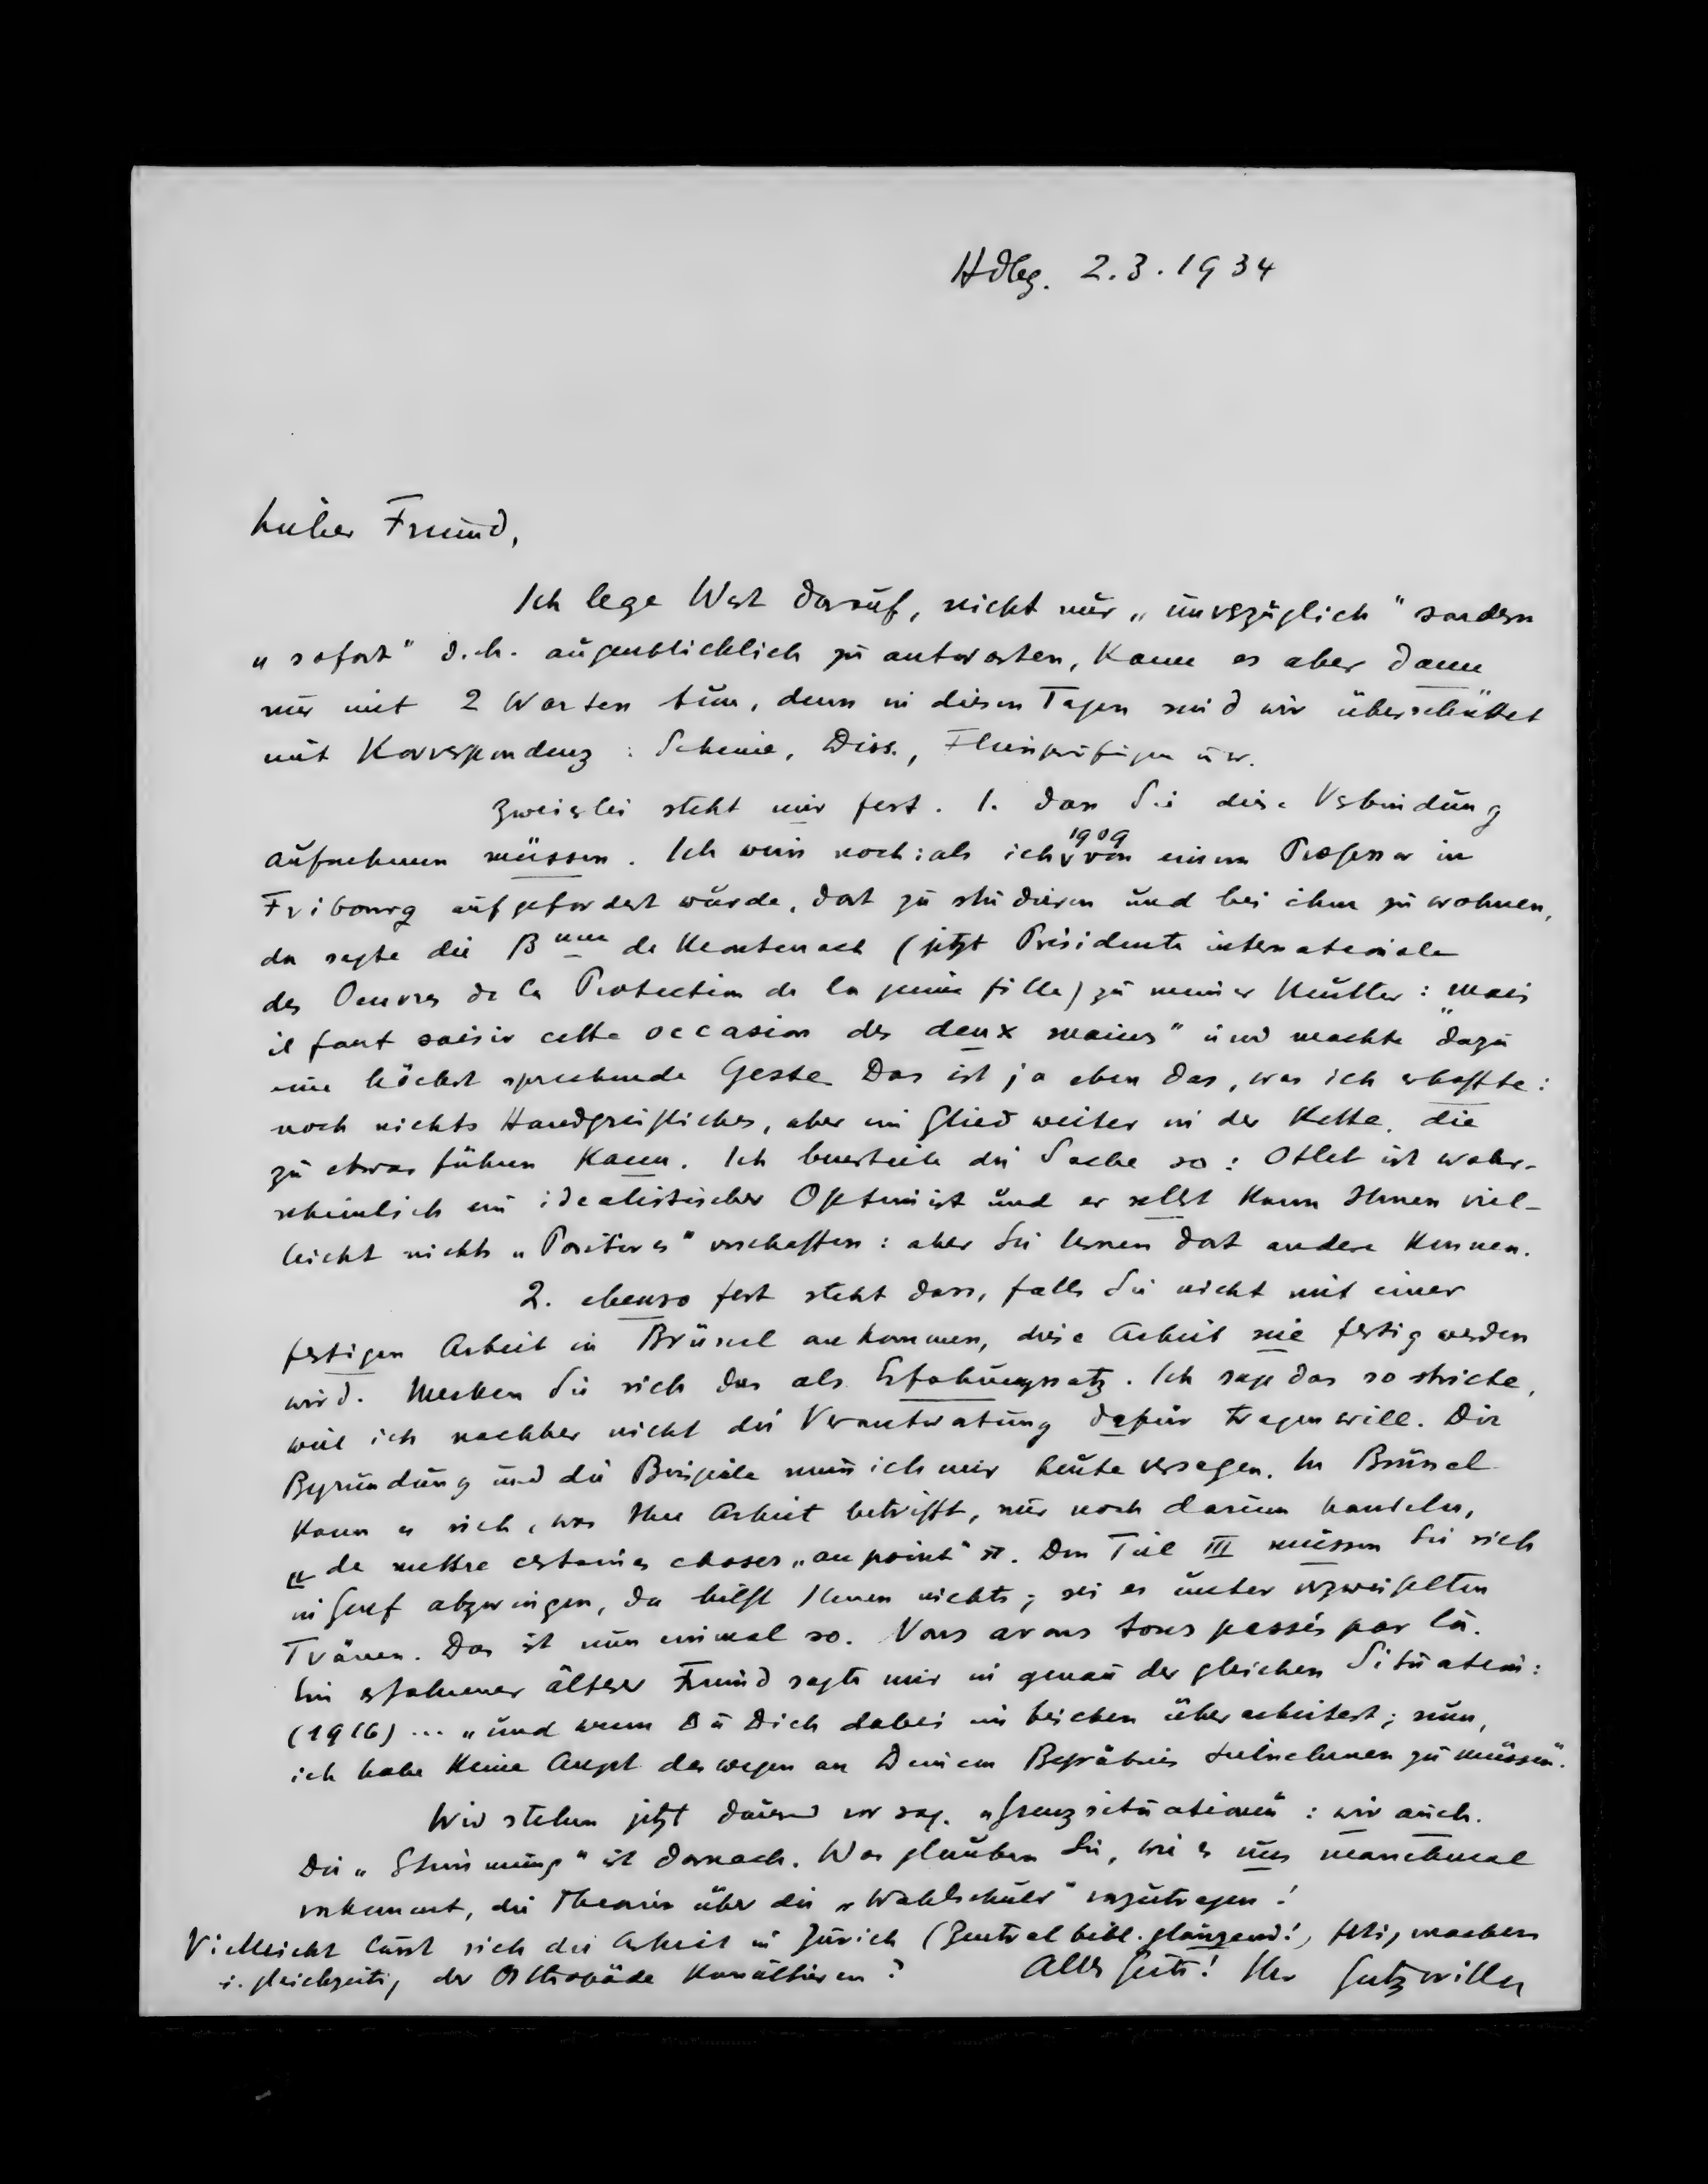 Hdbg. 2.3.1934
Lieber Freund,
Ich lege Wert darauf, nicht nur „unverzüglich" sondern
„sofort" d.h. augenblicklich zu antworten, kann es aber dann
nur mit 2 Worten tun, denn in diesen Tagen sind wir überschüttet
mit Korrespondenz: Scheine, Diss., Fleissprüfungen usw.
Zweierlei steht mir fest. 1. dass Sie diese Verbindung
aufnehmen müssen. Ich weiss noch: als ich 1909 von einem Professor in
Fribourg aufgefordert wurde, dort zu studieren und bei ihm zu wohnen,
da sagte die Bnne de Montenach (jetzt Présidente internationale
des Oeuvres de la Protection de la jeune fille) zu meiner Mutter: „Mais
il faut saisir cette occasion des deux mains" und machte dazu
eine höchst sprechende Geste. Das ist ja eben das, was ich erhoffte:
noch nichts Handgreifliches, aber ein Glied weiter in der Kette, die
zu etwas führen kann. Ich beurteile die Sache so: Otlet ist wahr-
scheinlich ein idealistischer Optimist und er selbst kann Ihnen viel-
leicht nichts „Positives" verschaffen: aber Sie lernen dort andere kennen.
2. ebenso fest steht dass, falls Sie nicht mit einer
fertigen Arbeit in Brüssel ankommen, diese Arbeit nie fertig werden
wird. Merken Sie sich das als Erfahrungssatz. Ich sage das so stricte,
weil ich nachher nicht die Verantwortung dafür tragen will. Die
Begründung und die Beispiele muss ich mir heute versagen. In Brüssel
kann es sich, was Ihre Arbeit betrifft, nur noch darum handeln,
„de mettre certaines choses „au point"". Den Teil III müssen Sie sich
in Genf abzwingen, da hilft Ihnen nichts; sei es unter verzweifelten
Tränen. Das ist nun einmal so. Nous avons tous passés par là.
Ein erfahrener älterer Freund sagte mir in genau der gleichen Situation:
(1916) ... „und wenn Du Dich dabei ein bischen überarbeitest; nun,
ich habe keine Angst deswegen an Deinem Begräbnis teilnehmen zu müssen".
Wir stehen jetzt dauernd vor sog. „Grenzsituationen": wir auch.
Die „Stimmung" ist darnach. Was glauben Sie, wie es uns manchmal
vorkommt, die Theorien über die „Wahlschuld" vorzutragen!
Vielleicht lässt sich die Arbeit in Zürich (Zentralbibl. glänzend!) fertig machen
u. gleichzeitig der Orthopäde konsultieren?
Alles Gute! Ihr Gutzwiller